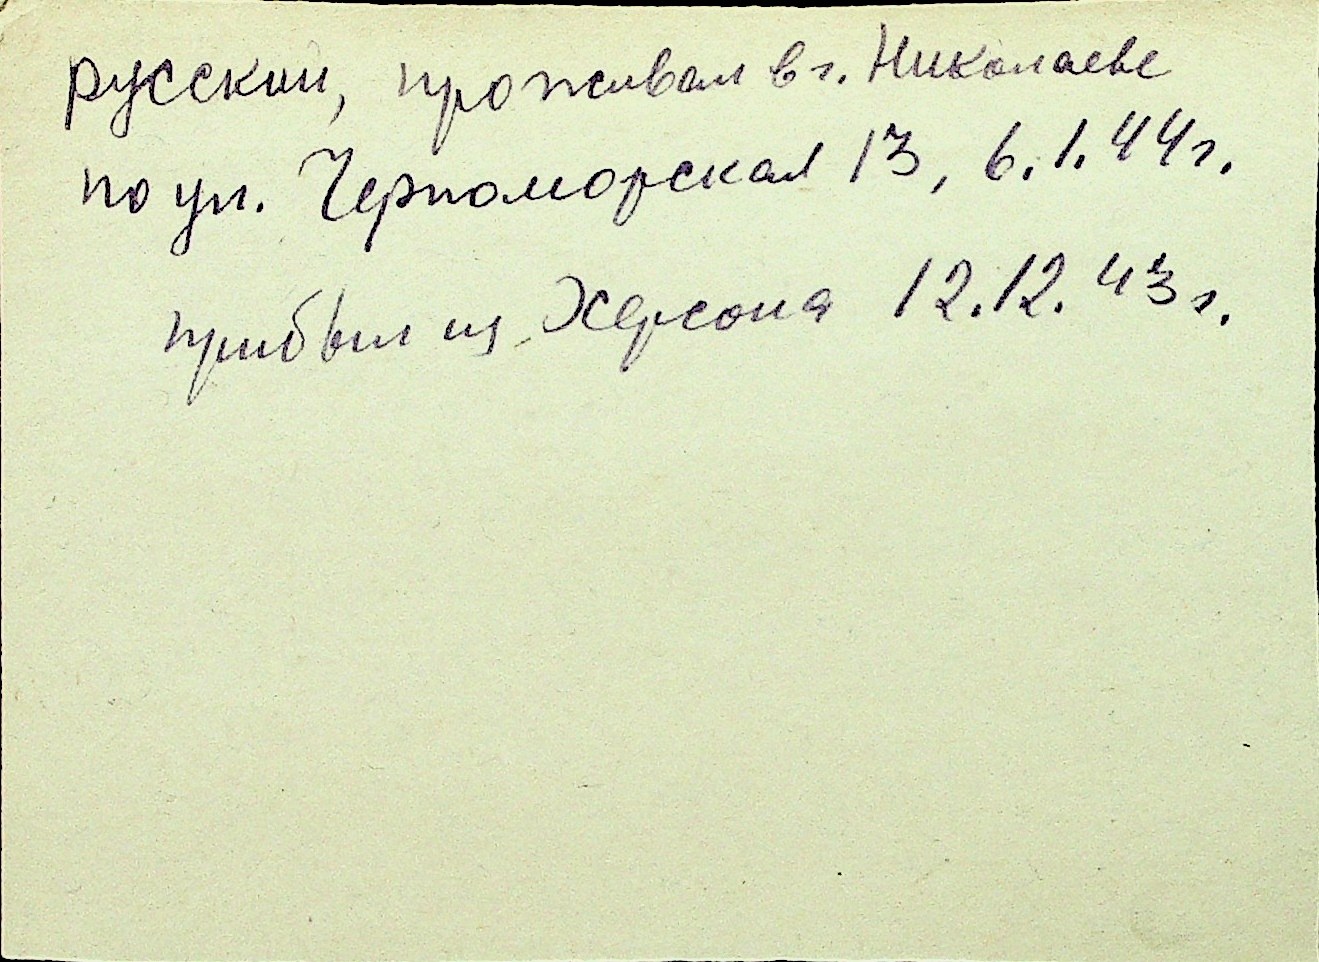 русский, проживал в г. Николаеве
по ул. Черноморская 13, 6.1.44г.
прибыл из Херсона 12.12.43г.